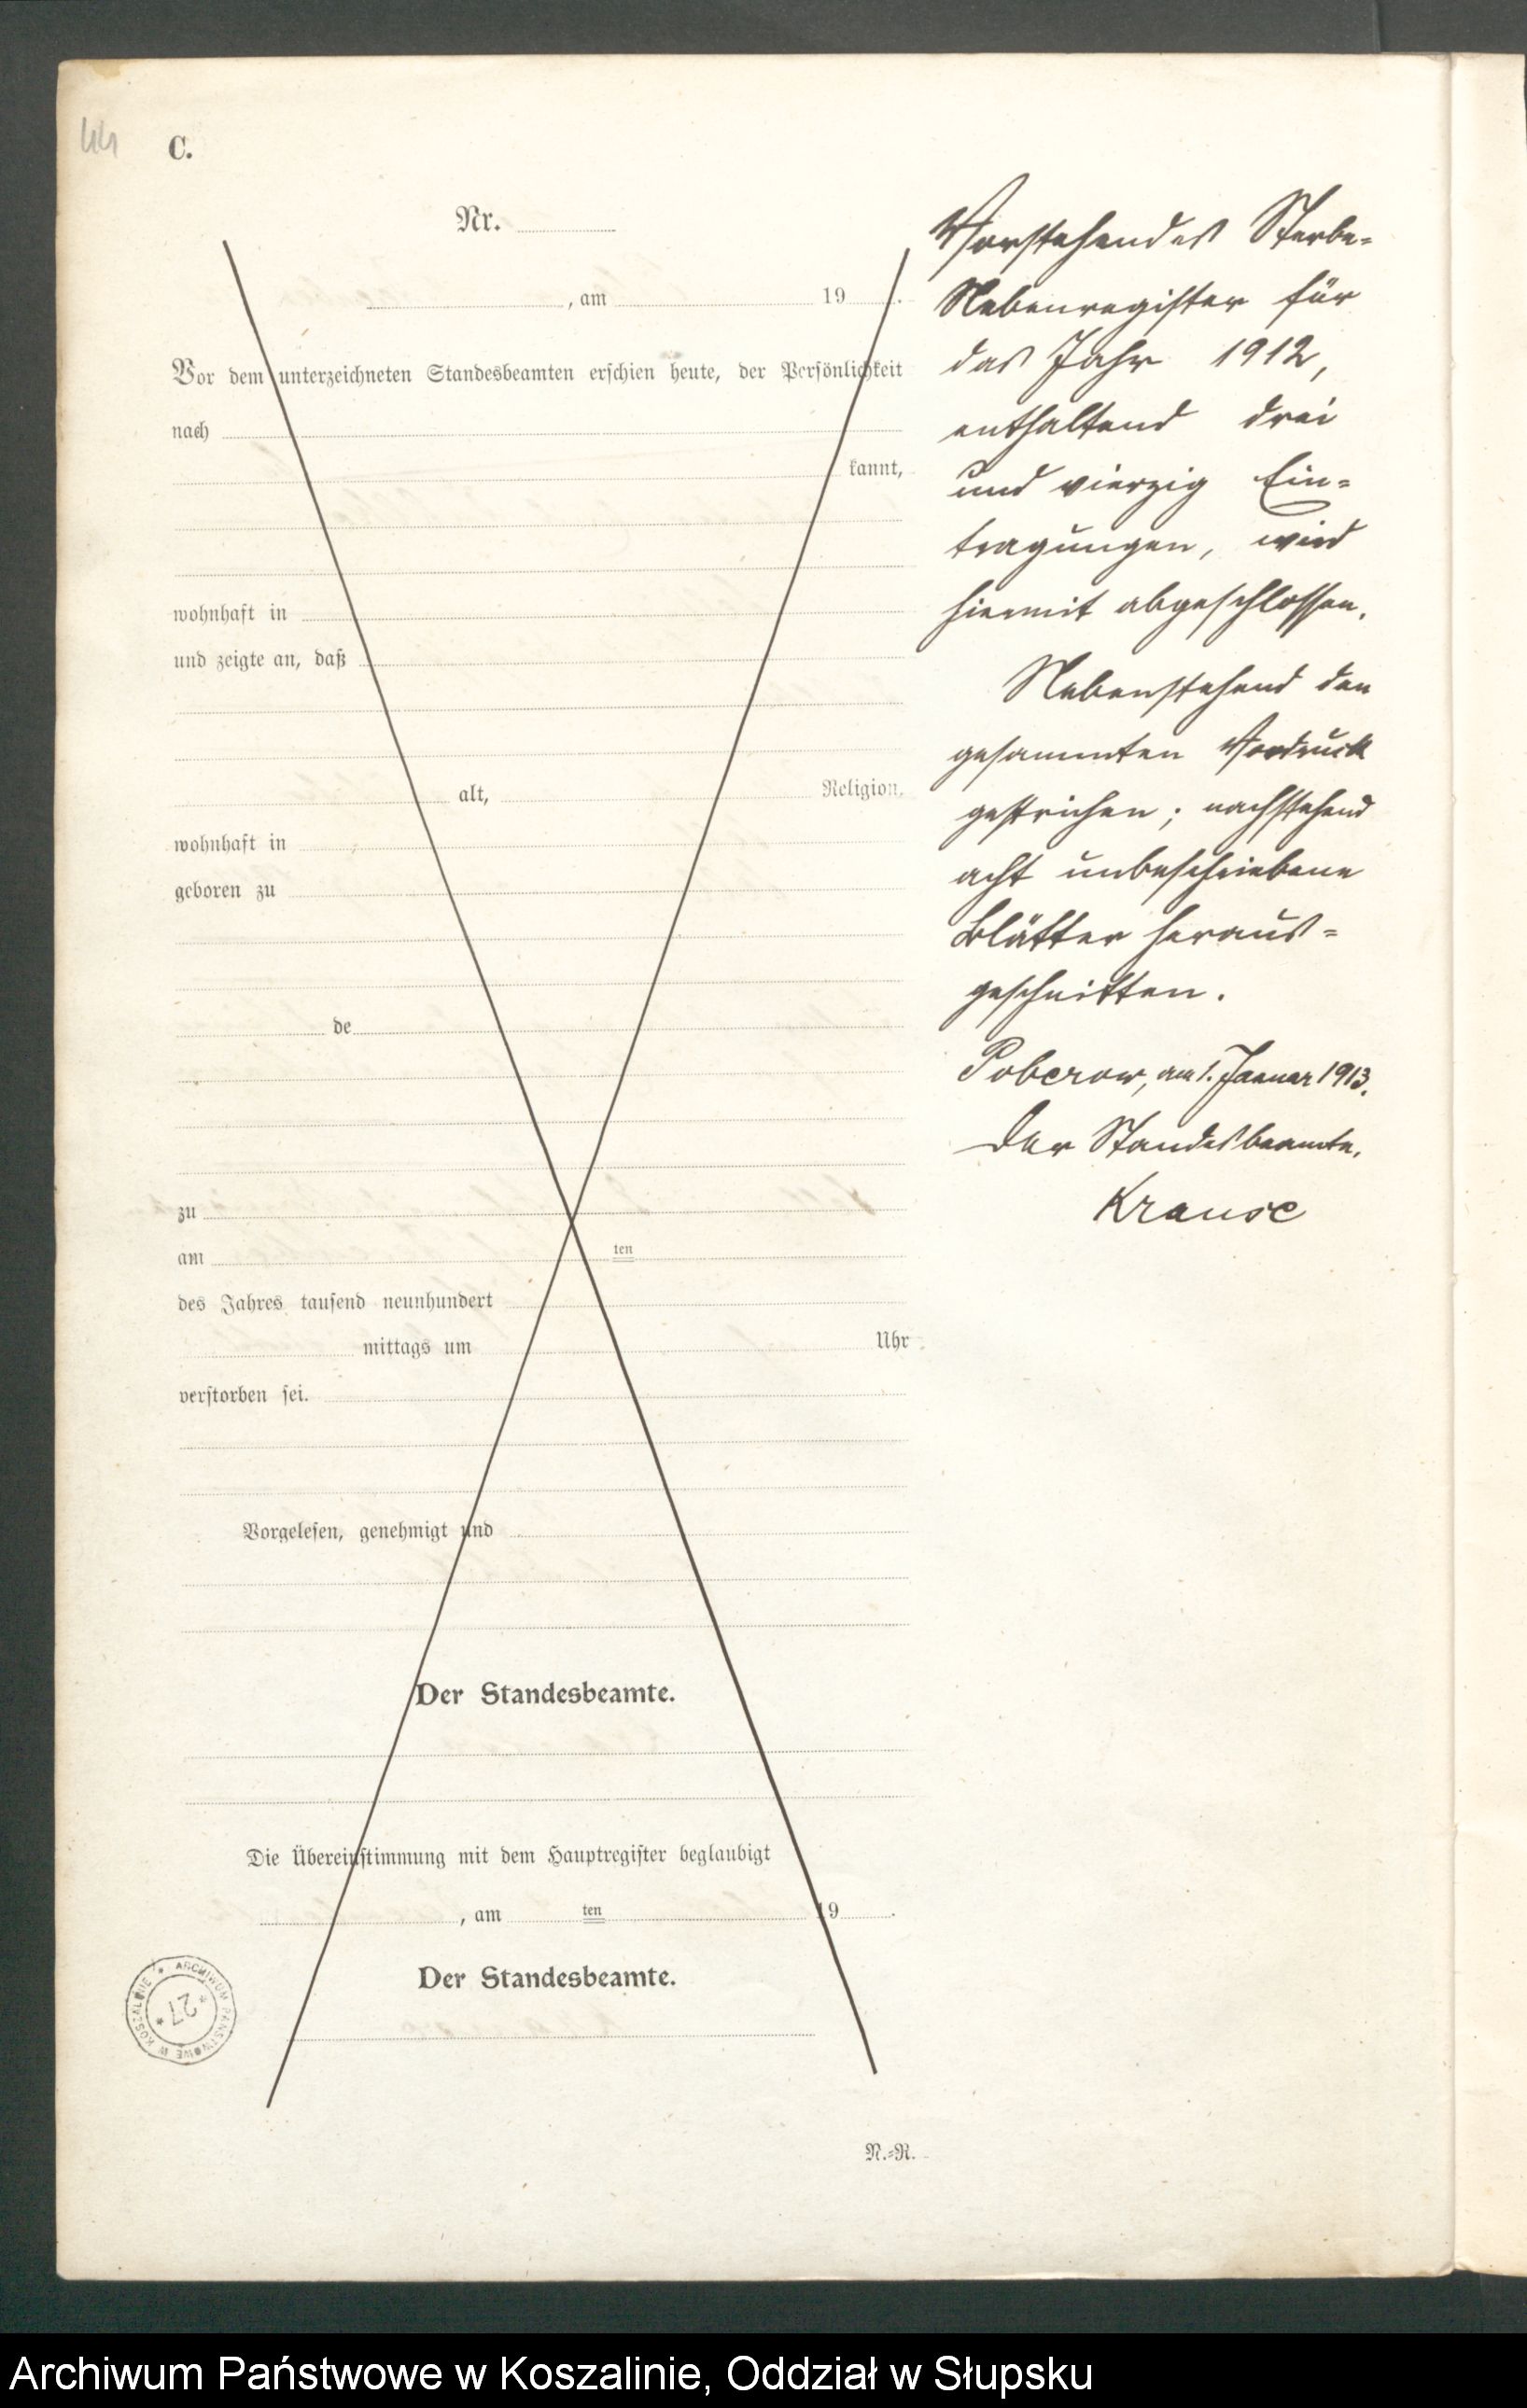 44
C.
Nr.
, am 19 .
Vor dem unterzeichneten Standesbeamten erschien heute, der Persönlichkeit
nach
kannt,
wohnhaft in
und zeigte an, daß
alt, Religion,
wohnhaft in
geboren zu
de
zu
am ten
des Jahres tausend neunhundert
mittags um Uhr
verstorben sei.
Vorgelesen, genehmigt und
Der Standesbeamte.
Die Übereinstimmung mit dem Hauptregister beglaubigt
, am ten 19 .
Der Standesbeamte.
N.=R.
Vorstehendes Sterbe=
Nebenregister für
das Jahr 1912,
enthaltend drei
und vierzig Ein=
tragungen, wird
hiermit abgeschlossen.
Nebenstehend den
gesammten Vordruck
gestrichen; nachstehend
acht unbeschriebene
Blätter heraus=
geschnitten.
Poberow, am 1. Januar 1913.
Der Standesbeamte.
Krause
* ARCHIWUM PAŃSTWOWE W KOSZALINIE
* 27 *
Archiwum Państwowe w Koszalinie, Oddział w Słupsku